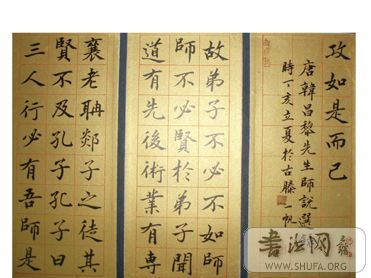 襄老聃郯子之徒其
賢不及孔子孔子曰
三人行必有吾師是
故弟子不必不如師
師不必賢於弟子聞
道有先後術業有專
攻如是而已
唐韓昌黎先生師說選
時丁亥立夏於古滕一帆
書法网
WWW.SHUFA.ORG